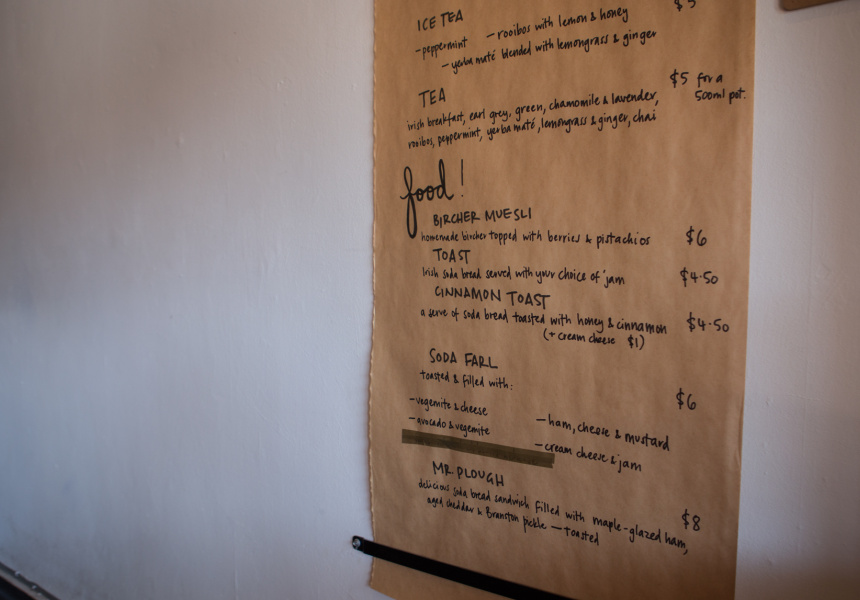 ICE TEA $5
-peppermint - rooibos with lemon & honey
- yerba maté blended with lemongrass & ginger
TEA $5 for a
500ml pot.
irish breakfast, earl grey, green, chamomile & lavender,
rooibos, peppermint, yerba maté, lemongrass & ginger, chai
food!
BIRCHER MUESLI
homemade bircher topped with berries & pistachios $6
TOAST
Irish soda bread served with your choice of jam $4.50
CINNAMON TOAST
a serve of soda bread toasted with honey & cinnamon $4.50
(+ cream cheese $1)
SODA FARL
toasted & filled with: $6
-vegemite & cheese - ham, cheese & mustard
-avocado & vegemite - cream cheese & jam
MR. PLOUGH
delicious soda bread sandwich filled with maple-glazed ham, $8
aged cheddar & Branston pickle - toasted